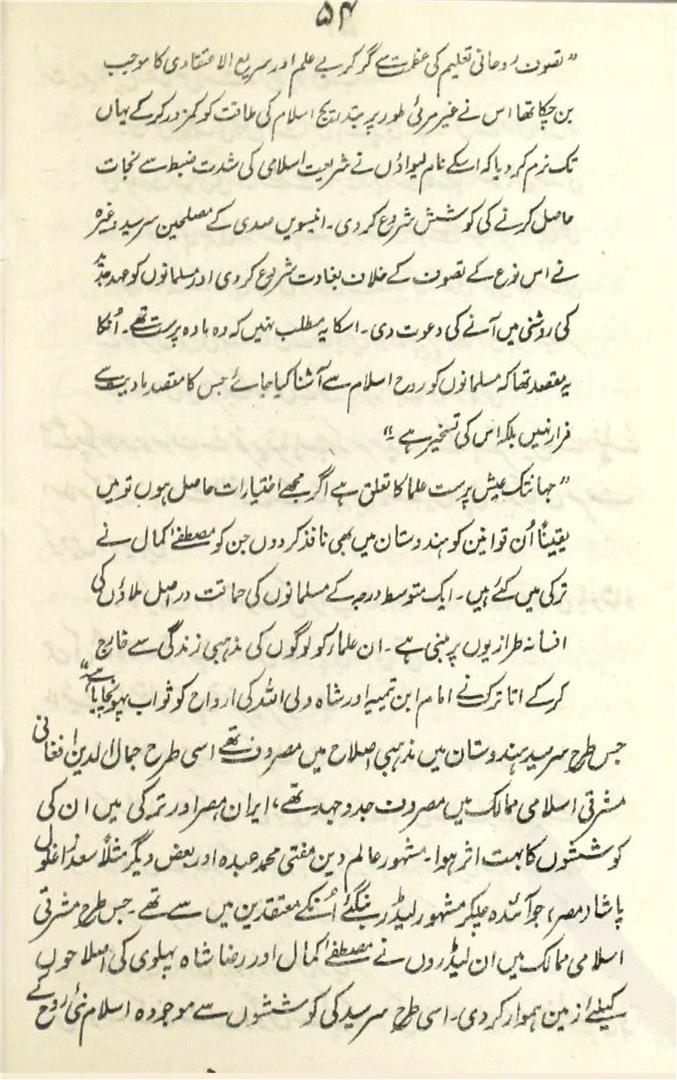 ۵۴
”تصوف روحانی تعلیم کی عظمت سے گر کر بے علم اور سریع الاعتقادی کا موجب
بن چکا تھا اس نے غیر مرئی طور پر بتدریج اسلام کی طاقت کو کمزور کرکے یہاں
تک نرم کر دیا کہ اسکے نام لیواؤں نے شریعت اسلامی کی شدت ضبط سے نجات
حاصل کرنے کی کوشش شروع کر دی۔ انیسویں صدی کے مصلحین سرسید وغیرہ
نے اس نوع کے تصوف کے خلاف بغاوت شروع کر دی اور مسلمانوں کو عہد جدید
کی روشنی میں آنے کی دعوت دی۔ اسکا یہ مطلب نہیں کہ وہ مادہ پرست تھے۔ اُنکا
یہ مقصد تھا کہ مسلمانوں کو روح اسلام سے آشنا کیا جائے جس کا مقصد مادیت سے
فرار نہیں بلکہ اس کی تسخیر ہے۔“
”جہانتک عیش پرست علما کا تعلق ہے اگر مجھے اختیارات حاصل ہوں تو میں
یقیناً اُن قوانین کو ہندوستان میں بھی نافذ کر دوں جن کو مصطفےٰ کمال نے
ترکی میں کئے ہیں۔ ایک متوسط درجہ کے مسلمانوں کی حماقت دراصل ملاؤں کی
افسانہ طرازیوں پر مبنی ہے۔ ان علماء کو لوگوں کی مذہبی زندگی سے خارج
کرکے اتاترک نے امام ابن تیمیہ اور شاہ ولی اللہ کی ارواح کو ثواب پہونچایا ہے“
جس طرح سرسید ہندوستان میں مذہبی اصلاح میں مصروف تھے اسی طرح جمال الدین افغانی
مشرقی اسلامی ممالک میں مصروف جدوجہد تھے، ایران مصر اور ترکی میں ان کی
کوششوں کا بہت اثر ہوا۔ مشہور عالم دین مفتی محمد عبدہ اور بعض دیگر مثلاً سعد زاغلول
پاشا (مصر) جو آئندہ چلکر مشہور لیڈر بنگئے اُنکے معتقدین میں سے تھے۔ جس طرح مشرقی
اسلامی ممالک میں ان لیڈروں نے مصطفےٰ کمال اور رضا شاہ پہلوی کی اصلاحوں
کیلئے زمین ہموار کر دی۔ اسی طرح سرسید کی کوششوں سے موجودہ اسلام نئی روح کے